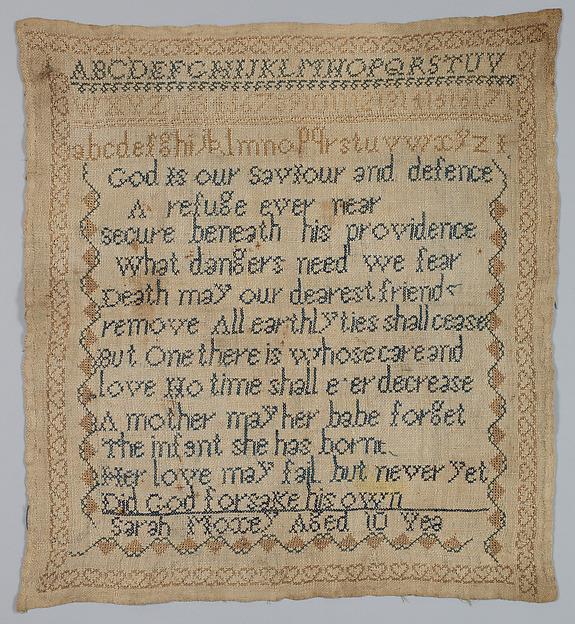 ABCDEFGHIJKLMNOPQRSTUV
abcdefghijklmnopqrstuvwxyz
God is our saviour and defence
A refuge ever near
secure beneath his providence
What dangers need we fear
Death may our dearest friends
remove All earthly ties shall cease
But One there is whose care and
love No time shall e'er decrease
A mother may her babe forget
The infent she has borne
Her love may fail but never yet
Did God forsake his own
Sarah Aged 10 Yea